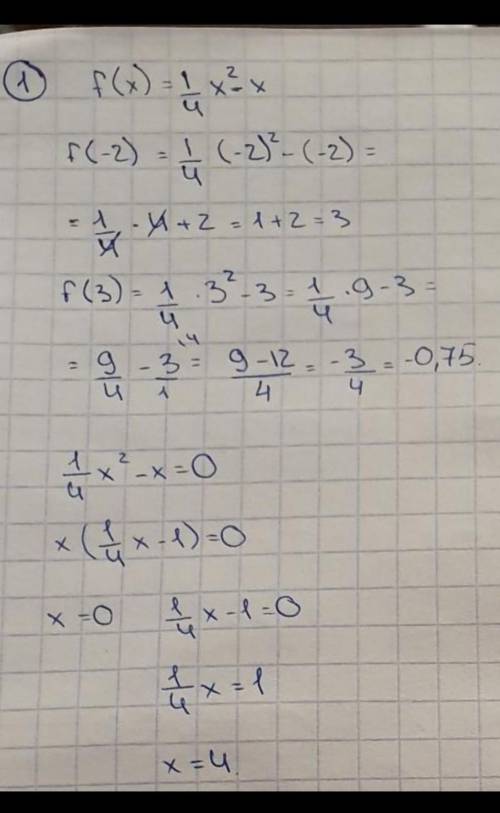 1 f(x) = 1/4 x² - x
f(-2) = 1/4 (-2)² - (-2) =
= 1/4 · 4 + 2 = 1 + 2 = 3
f(3) = 1/4 · 3² - 3 = 1/4 · 9 - 3 =
= 9/4 - 3/1 ·4 = (9 - 12)/4 = -3/4 = -0,75.
1/4 x² - x = 0
x (1/4 x - 1) = 0
x = 0 1/4 x - 1 = 0
1/4 x = 1
x = 4.